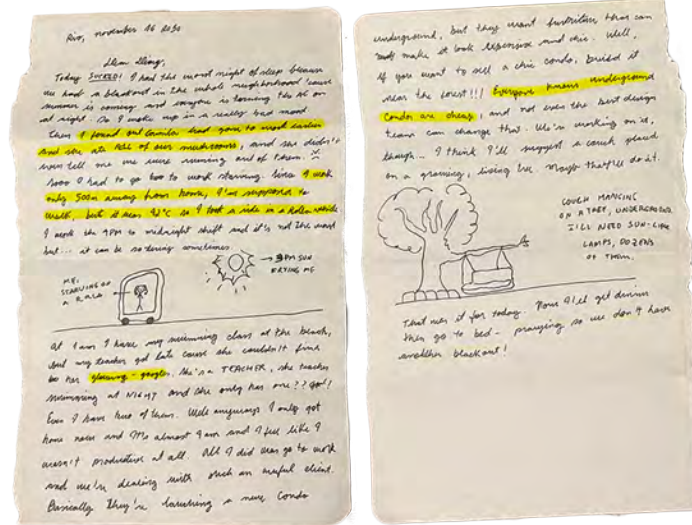 Rio, november 16 2050
Dear Diary,
Today SUCKED! I had the worst night of sleep because
we had a blackout in the whole neighborhood 'cause
summer is coming and everyone is turning the AC on
at night. So I woke up in a really bad mood
then I found out Camila had gone to work earlier
and she ate ALL of our mushrooms, and she didn't
even tell me we were running out of them.
Sooo I had to go to work starving. Since I work
only 500m away from home, I'm supposed to
walk, but it was 42°C so I took a ride in a
I work the 9PM to midnight shift and it's not the worst
but... it can be so tiring sometimes.
ME,
STARVING ON
A RALO
→ 9PM SUN
FRYING ME
At 1am I have my swimming class at the beach,
but my teacher got late cause she couldn't find
her glowing-googles. She's a TEACHER, she teaches
swimming at NIGHT and she only has one??
Even I have two of them. Well anyways I only got
home now and it's almost 4am and I feel like I
wasn't productive at all. All I did was go to work
and we're dealing with such an awful client.
Basically they're launching a new condo
underground, but they want furniture that can
make it look expensive and chic. Well,
if you want to sell a chic condo, build it
near the forest!!! Everyone knows underground
condos are cheap, and not even the best design
team can change that. We're working on it,
though... I think I'll suggest a couch placed
on a growing, living tree. Maybe that'll do it.
COUCH HANGING
ON A TREE, UNDERGROUND
I'LL NEED SUN-LIKE
LAMPS, DOZENS
OF THEM.
That was it for today. Now I'll get dinner
then go to bed - praying so we don't have
another blackout!